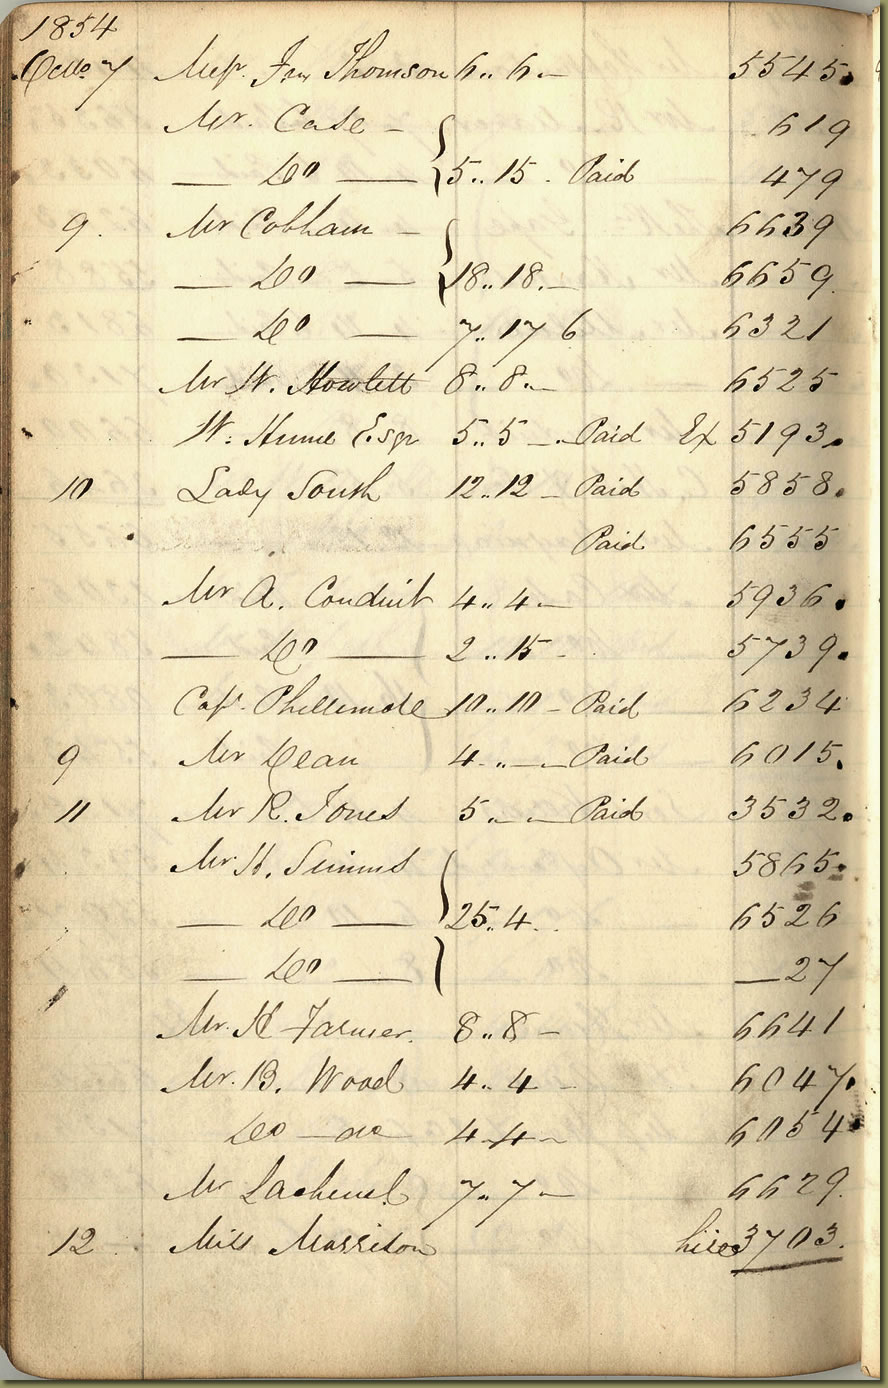 1854
Octo 7 Mesrs. Jas Thomson 6 .. 6 .- 5545.
Mr. Case - 619
— Do — 5 .. 15 . Paid 479
9. Mr Cobham - 6639
— Do — 18 .. 18 .- 6659.
— Do — 7 .. 17 6 6321
Mr W. Howlett 8 .. 8 .- 6525
W. Hume Esqr 5 .. 5 - .. Paid Ex 5193.
10 Lady South 12 .. 12 - Paid 5858.
Paid 6555
Mr A. Conduit 4 .. 4 - 5936.
— Do — 2 .. 15 - 5739.
Capt. Phillimore 10 .. 10 - Paid 6234
9 Mr Dean 4 - .. - Paid 6015.
11 Mr R. Jones 5 .. - Paid 3532.
Mr. H. Simms 5865.
— Do — 25 .. 4 .. 6526
— Do — — 27
Mr. H Farmer. 8 .. 8 - 6641
Mr. B. Wood 4 .. 4 - 6047.
Do — do 4 .. 4 - 6054
Mr Lachenal 7 .. 7 - 6629.
12 Miss Morrison hire 3703.